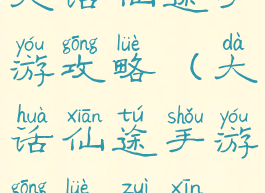 大话仙途手
yóu gōng lüè dà
游攻略（大
huà xiān tú shǒu yóu
话仙途手游
gōng lüè zuì xīn